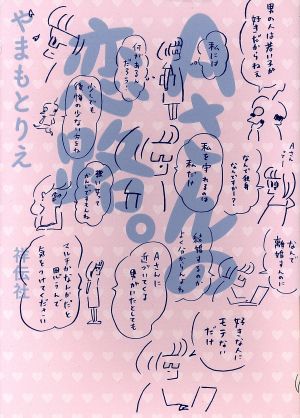 Aさんの
恋路。
やまもとりえ
祥伝社
男の人は若い子が
好きだからねえ
私には
何があるん
だろう?
少しでも
後悔の少ない方を
Aさん
って
なんで独身
なんですか?
私を守れるのは
私だけ
なんで
離婚したんに
結婚するのが
Aさんに
近づいてくる
男がいたとしても
マルチか、なんかだと
思うんで
気をつけてください
好きな人に
モテない
だけ